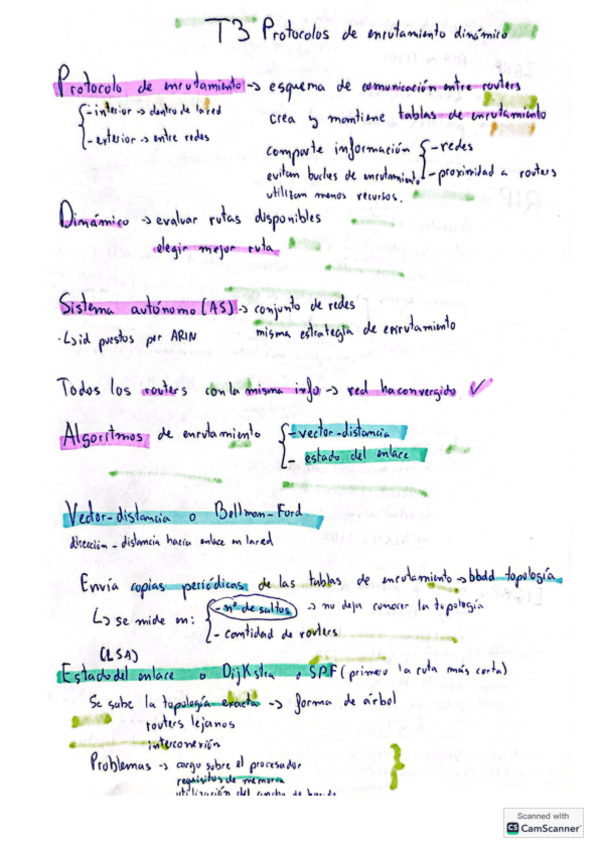 T3 Protocolos de enrutamiento dinámico
Protocolo de enrutamiento -> esquema de comunicación entre routers
- interior -> dentro de la red
crea y mantiene tablas de enrutamiento
- exterior -> entre redes
comparte información - redes
evitan bucles de enrutamiento - proximidad a routers
utilizan menos recursos.
Dinámico -> evaluar rutas disponibles
elegir mejor ruta
Sistema autónomo (AS) -> conjunto de redes
↳ id puestos por ARIN misma estrategia de enrutamiento
Todos los routers con la misma info -> red ha convergido ✓
Algoritmos de enrutamiento - vector-distancia
- estado del enlace
Vector-distancia o Bellman-Ford
dirección - distancia hacia enlace en la red
Envía copias periódicas de las tablas de enrutamiento -> bbdd topología
↳ se mide en: - nº de saltos -> no deja conocer la topología
- cantidad de routers
(LSA)
Estado del enlace o Dijkstra o SPF (primero la ruta más corta)
Se sabe la topología exacta -> forma de árbol
routers lejanos
interconexión
Problemas -> carga sobre el procesador
requisitos de memoria
utilización del ancho de banda
Scanned with
CS CamScanner